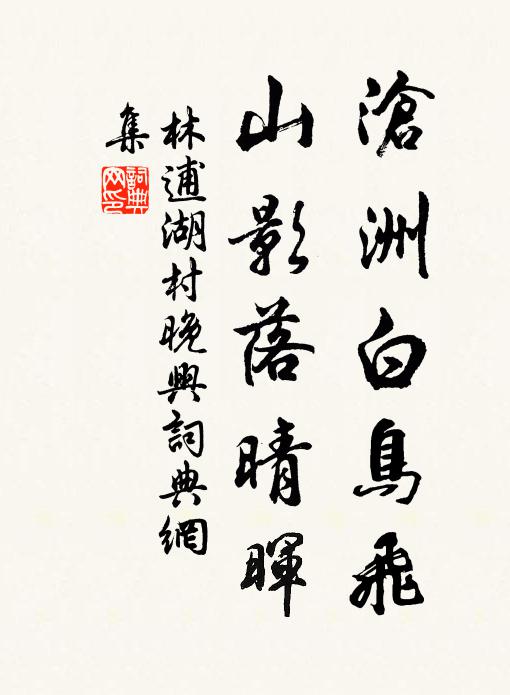 滄洲白鳥飛
山影落晴暉
林逋湖村晚興詞典網
集
詞典網印